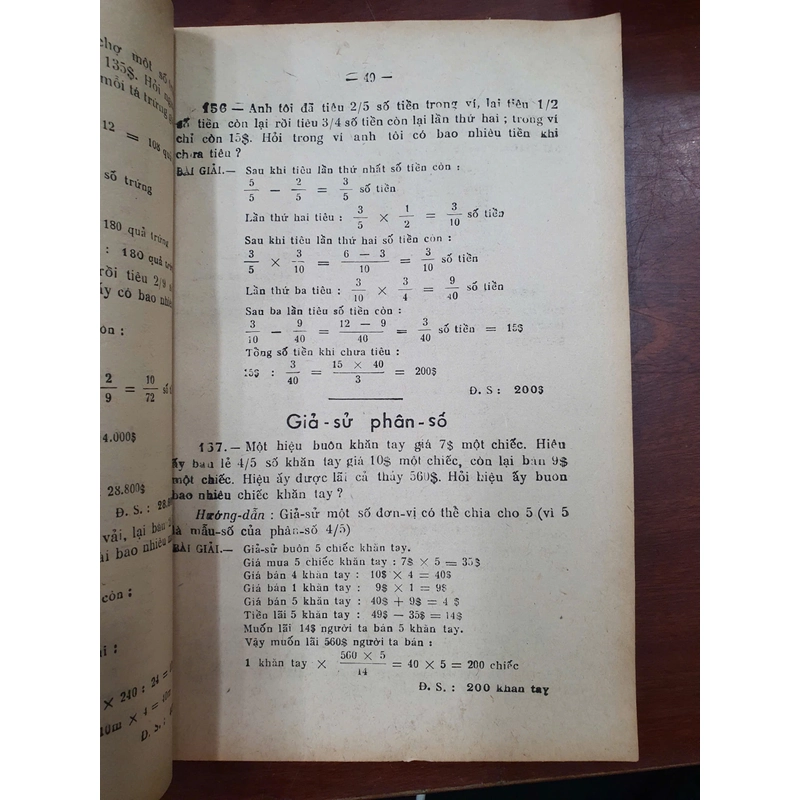 chợ một số
135$. Hỏi
mỗi tá trứng
12 = 108 quả
số trứng
180 quả trứng
: 180 quả
rồi tiêu 2/9
ấy có bao nhiêu
ôn :
2/9 = 10/72 số
4.000$
28.800$
Đ. S. : 28.
vải, lại bán
ai bao nhiêu
còn :
ại :
× 240 : 24 =
10m × 4 = 40m
Đ. S. :
— 49 —
156 — Anh tôi đã tiêu 2/5 số tiền trong ví, lại tiêu 1/2
số tiền còn lại rồi tiêu 3/4 số tiền còn lại lần thứ hai ; trong ví
chỉ còn 15$. Hỏi trong ví anh tôi có bao nhiêu tiền khi
chưa tiêu ?
BÀI GIẢI.— Sau khi tiêu lần thứ nhất số tiền còn :
5/5 — 2/5 = 3/5 số tiền
Lần thứ hai tiêu : 3/5 × 1/2 = 3/10 số tiền
Sau khi tiêu lần thứ hai số tiền còn :
3/5 × 3/10 = 6 — 3/10 = 3/10 số tiền
Lần thứ ba tiêu : 3/10 × 3/4 = 9/40 số tiền
Sau ba lần tiêu số tiền còn :
3/10 — 9/40 = 12 — 9/40 = 3/40 số tiền = 15$
Tổng số tiền khi chưa tiêu :
15$ : 3/40 = 15 × 40/3 = 200$
Đ. S : 200$
Giả-sử phân-số
157.— Một hiệu buôn khăn tay giá 7$ một chiếc. Hiệu
ấy bán lẻ 4/5 số khăn tay giá 10$ một chiếc, còn lại bán 9$
một chiếc. Hiệu ấy được lãi cả thảy 560$. Hỏi hiệu ấy buôn
bao nhiêu chiếc khăn tay ?
Hướng-dẫn : Giả-sử một số đơn-vị có thể chia cho 5 (vì 5
là mẫu-số của phân-số 4/5)
BÀI GIẢI.— Giả-sử buôn 5 chiếc khăn tay.
Giá mua 5 chiếc khăn tay : 7$ × 5 = 35$
Giá bán 4 khăn tay : 10$ × 4 = 40$
Giá bán 1 khăn tay : 9$ × 1 = 9$
Giá bán 5 khăn tay : 40$ + 9$ = 4 $
Tiền lãi 5 khăn tay : 49$ — 35$ = 14$
Muốn lãi 14$ người ta bán 5 khăn tay.
Vậy muốn lãi 560$ người ta bán :
1 khăn tay × 560 × 5/14 = 40 × 5 = 200 chiếc
Đ. S. : 200 khăn tay